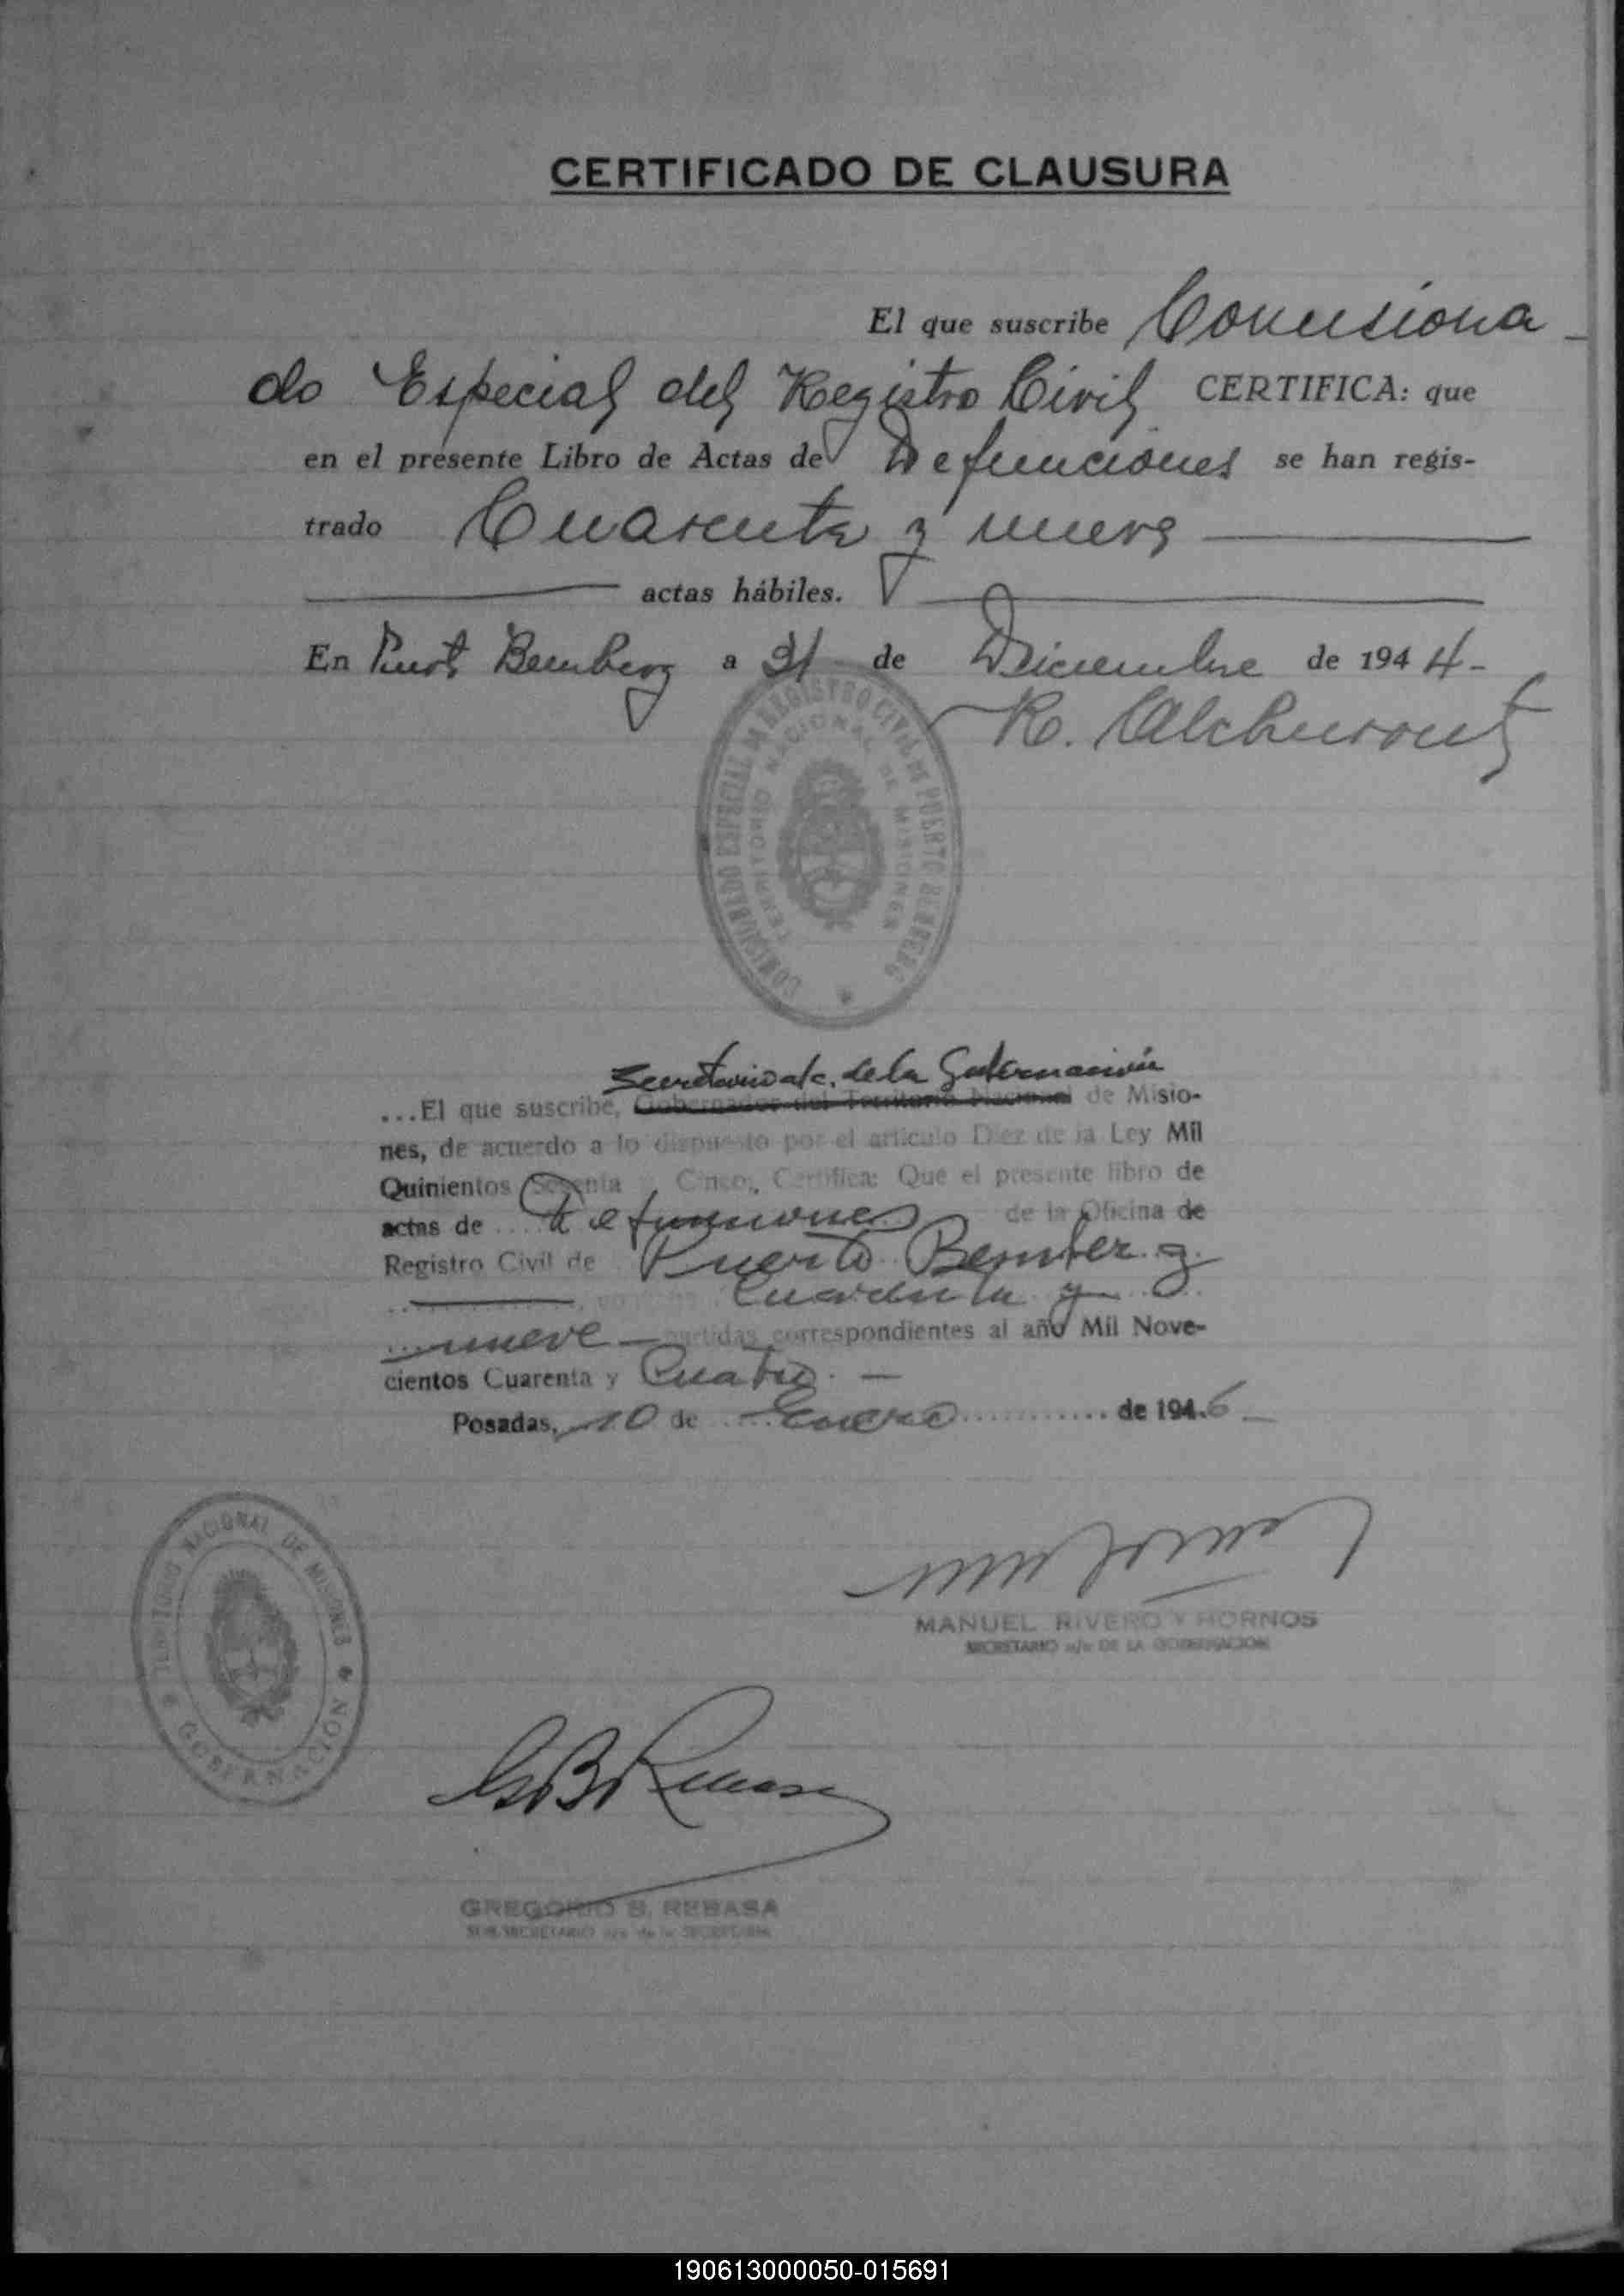 CERTIFICADO DE CLAUSURA
El que suscribe Comisiona-
do Especial del Registro Civil CERTIFICA: que
en el presente Libro de Actas de Defunciones se han regis-
trado Cuarenta y nueve
actas hábiles.
En Puerto Bemberg a 31 de Diciembre de 1944-
COMISIONADO ESPECIAL DE REGISTRO CIVIL DE PUERTO BEMBERG
TERRITORIO NACIONAL DE MISIONES
Secretario a/c. de la Gobernación
...El que suscribe, Gobernador del Territorio Nacional de Misio-
nes, de acuerdo a lo dispuesto por el artículo Diez de la Ley Mil
Quinientos Sesenta y Cinco, Certifica: Que el presente libro de
actas de Defunciones de la Oficina de
Registro Civil de Puerto Bemberg
Cuarenta y
nueve partidas correspondientes al año Mil Nove-
cientos Cuarenta y Cuatro.-
Posadas, 10 de Enero de 1946-
TERRITORIO NACIONAL DE MISIONES
GOBERNACIÓN
MANUEL RIVERO Y HORNOS
SECRETARIO a/c DE LA GOBERNACION
GREGORIO B. REBASA
SUB-SECRETARIO a/c de la SECRETARIA
190613000050-015691